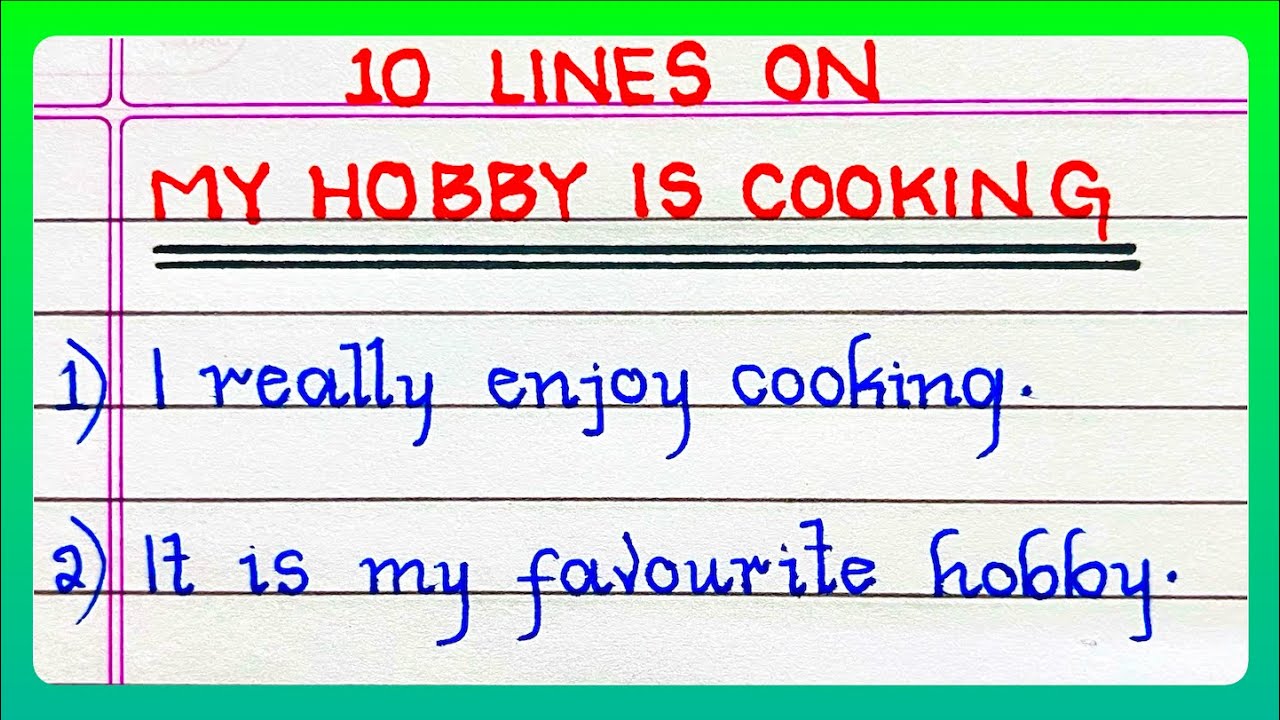 10 LINES ON
MY HOBBY IS COOKING
1) I really enjoy cooking.
2) It is my favourite hobby.